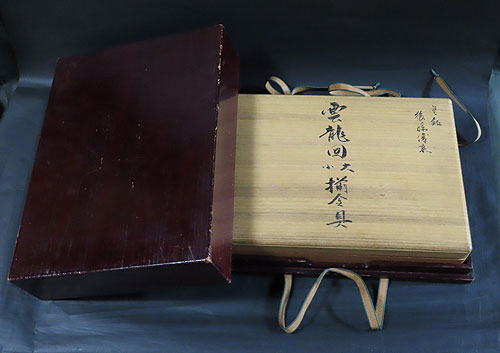 後藤清乗
雲龍図大小揃金具